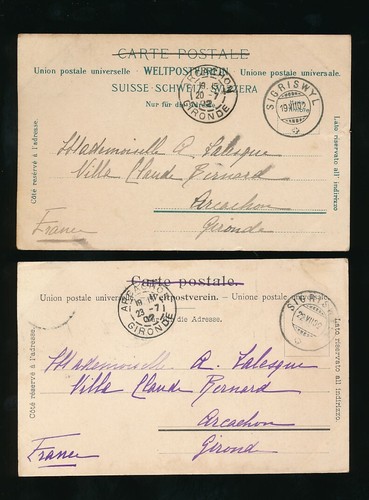 CARTE POSTALE
Union postale universelle WELTPOSTVEREIN Unione postale universale.
SUISSE SCHWEIZ SVIZZERA
Nur für die Adresse.
ARCACHON
20 -7
02
GIRONDE
SIGRISWYL
19 VII 02
Côté réservé à l'adresse.
Lato riservato all indirizzo
Mademoiselle A. Salesque
Villa Claude Bernard
Arcachon
Gironde
France
Carte postale.
Union postale universelle. Weltpostverein. Unione postale universale.
die Adresse.
ARCACHON
23 -7
02
GIRONDE
SIGRIS
22 VII 02
Côté réservé à l'adresse.
Lato riservato all indirizzo
Mademoiselle A. Salesque
Villa Claude Bernard
Arcachon
Girond
France